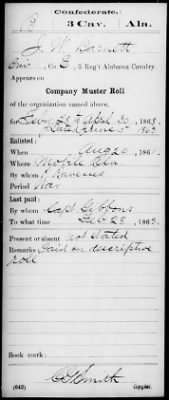 Confederate.
3 Cav. Ala.
J. W. Barnett
Co. E, 3 Reg't Alabama Cavalry.
Appears on
Company Muster Roll
of the organization named above,
for Feby 28 to April 30, 1863.
Enlisted:
When Aug 20, 186
Where Mobile Ala.
By whom
Period War
Last paid:
By whom Capt Gibbons
To what time Feb 28, 1863.
Present or absent Not stated
Remarks: Paid on discriptive
roll
Book mark:
(642) Copyist.